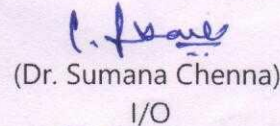 (Dr. Sumana Chenna)
I/O